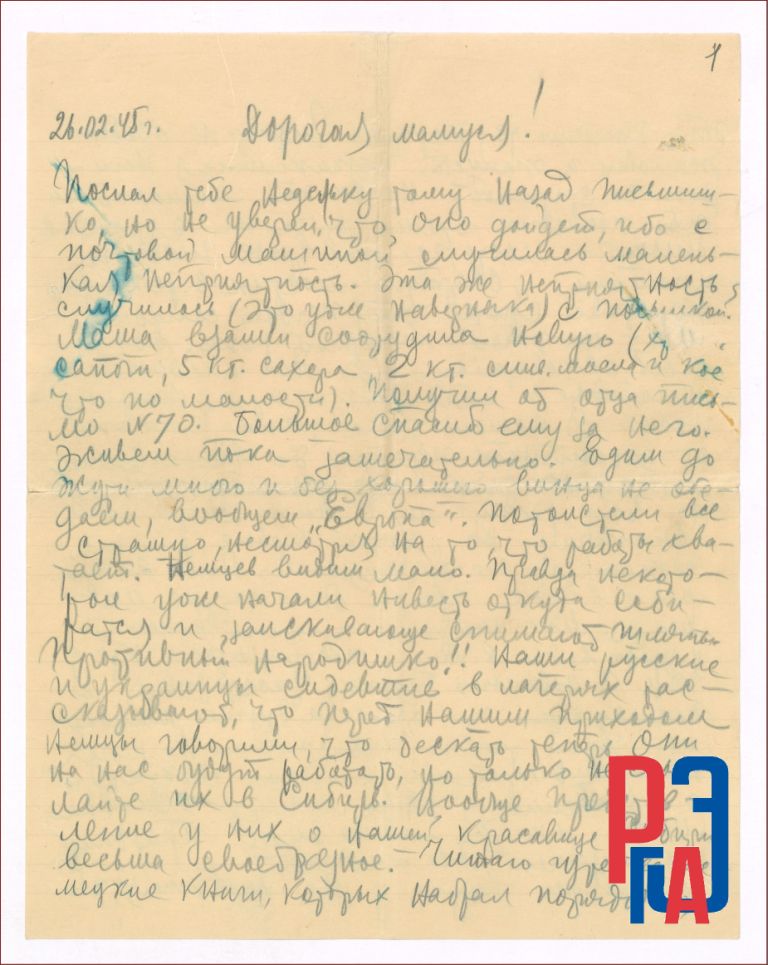 1
26.02.45г. Дорогая мамуся!
Послал тебе недельку тому назад письмиш-
ко, но не уверен, что оно дойдет, ибо с
почтовой машиной случилась малень-
кая неприятность. Эта же неприятность
случилось (это уже наверняка) с посылкой.
Маша взамен соорудила новую (
сапоги, 5 кг. сахара 2 кг. слив. масла и кое
что по малости). Получил от отца пись-
мо №70. Большое спасиб ему за него.
Живем пока замечательно. Едим до
жути много и без хорошего винца не обе-
даем, вообщем „Европа". Потолстели все
страшно, несмотря на то, что работы хва-
тает. Немцев видим мало. Правда некото-
рые уже начали нивесть откуда соби-
ратся и заискивающе снимают шляпы.
Противный народишко!! Наши русские
и украинцы сидевшие в лагерях рас-
сказывают, что перед нашим приходом
немцы говорили, что дескать теперь они
на нас будут работать, но только не
лайте их в Сибирь. Вообще представ-
ление у них о нашей красавице
весьма своебразное. – Читаю
мецкие книги, которых набрал
РГАЭ